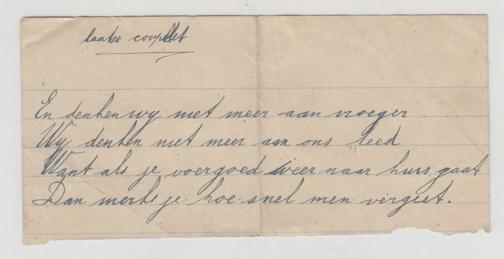 laatse couplet
En denken wy niet meer aan vroeger
Wy denken niet meer aan ons leed
Want als je voergoed weer naar huis gaat
Dan merk je hoe snel men vergeet.